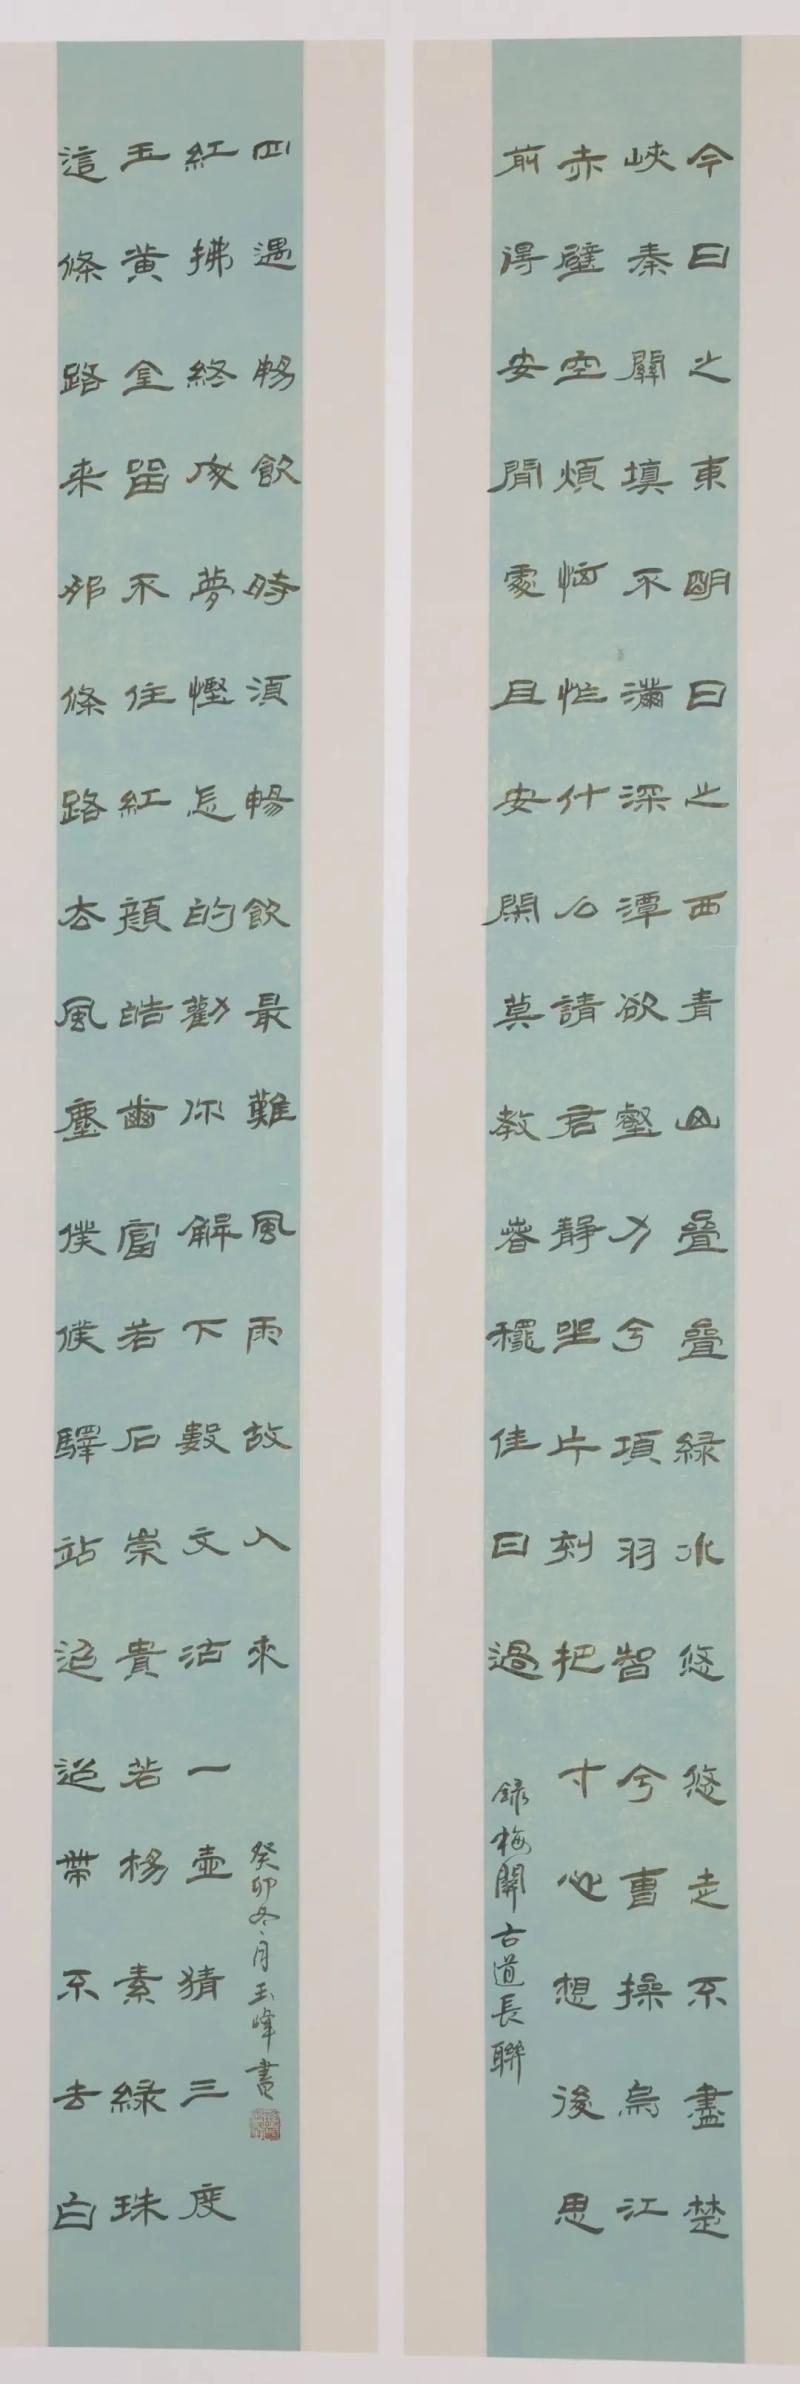 今日之東明日之西青山疊疊緑水悠悠走不盡楚
峽秦關填不滿深潭欲壑力兮項羽智兮曹操烏江
赤壁空煩惱忙什么請君靜坐片刻把寸心想後思
前得安閒處且安閑莫教春秋佳日過
録梅關古道長聯
這條路来那條路去風塵僕僕驛站迢迢帶不去白
玉黄金留不住紅顔皓齒富若石崇貴若楊素緑珠
紅拂終成夢慳怎的勸你解下數文沽一壺猜三度
四遇暢飲時須暢飲最難風雨故人來
癸卯冬月玉峰書